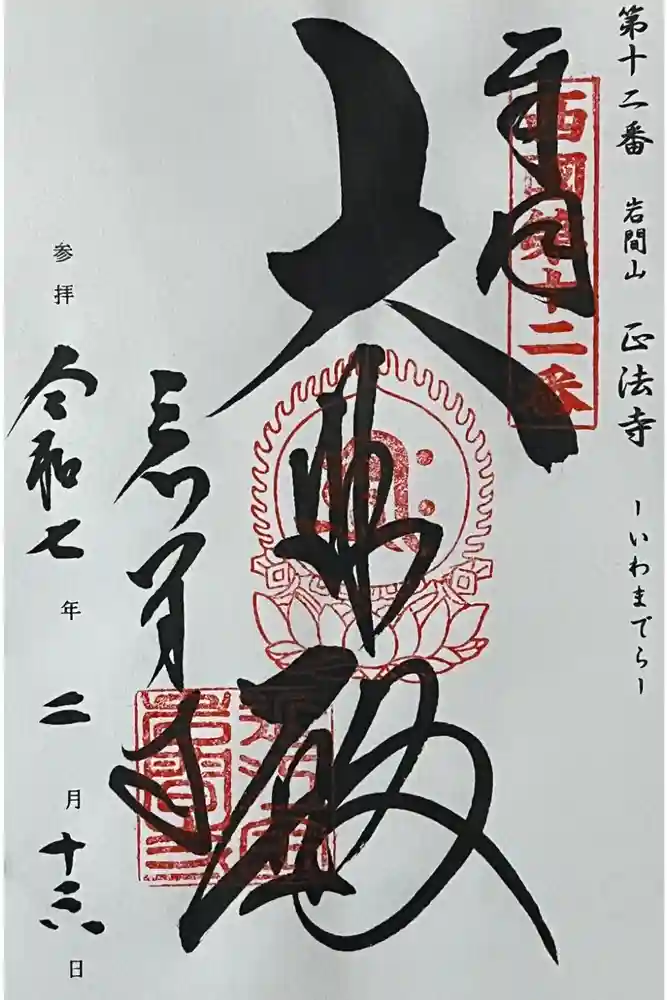 第十二番 岩間山 正法寺 ーいわまでらー
奉拝
西国第十二番
大悲殿
岩間寺
参拝 令和七年二月十六日